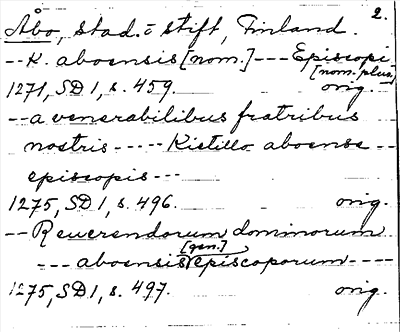 2.
Åbo, stad o stift, Finland.
-- K. aboensis [nom.] --- Episcopi
[nom. plur.]
1271, SD 1, s. 459. orig.
-- a venerabilibus fratribus
nostris ----- Kistillo aboense --
episcopis ---
1275, SD 1, s. 496. orig.
-- Reuerendorum dominorum
[gen.]
--- aboensis episcoporum ----
1275, SD 1, s. 497. orig.